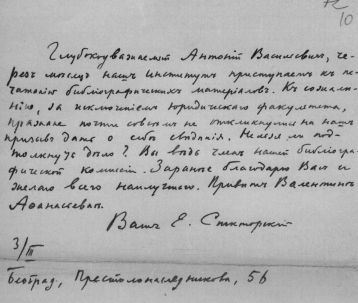 10
Глубокоуважаемый Антоній Васильевич, че-
резъ мѣсяцъ нашъ Институтъ приступаетъ къ пе-
чатанію библіографическихъ матеріаловъ. Къ сожалѣ-
нію, за исключеніемъ юридическаго факультета,
пражане почти совсѣмъ не откликнулись на нашъ
призывъ дать о себѣ свѣдѣнія. Нельзя ли под-
толкнуть дѣло? Вы вѣдь членъ нашей библіогра-
фической комиссіи. Заранѣе благодарю Васъ и
желаю всего наилучшаго. Привѣтъ Валентинѣ
Афанасьевнѣ.
Вашъ Е. Спекторскій
3/III
Београд, Престолонаследникова, 56